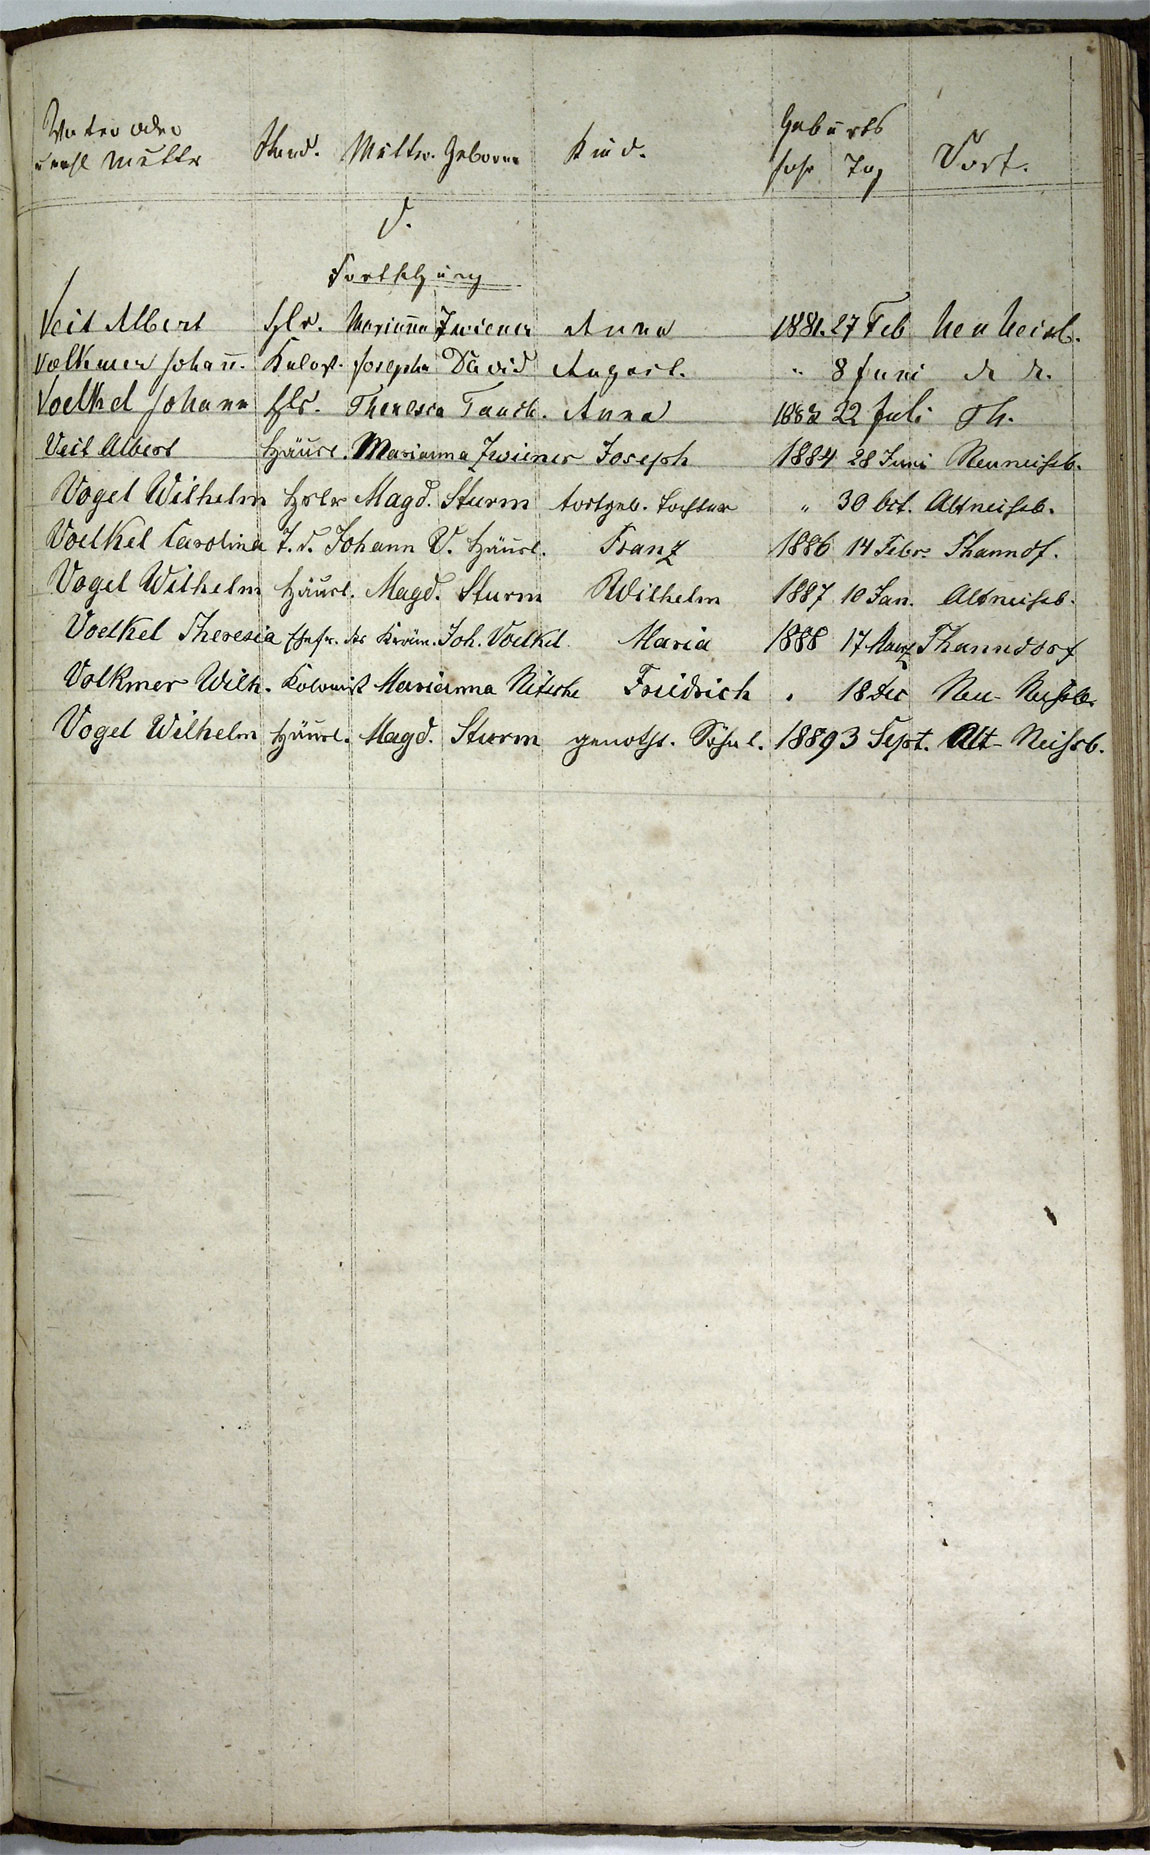 Vater oder Stand. Mutter. Geborne Kind. Geburts Ort.
unehl Mutter Jahr Tag
V.
Fortsetzung
Veit Albert Hslr. Marianna Zwiener Anna 1881. 27 Feb Neu Neisb.
Volkmer Johann. Kolost. Josepha David August. " 8 Juni
Voelkel Johann Hslr. Theresia Tauch. Anna 1883 22 Juli Th.
Veit Albert Häusl. Marianna Zwiener Joseph 1884 28 Juni Neuneissb.
Vogel Wilhelm Hslr Magd. Sturm todtgeb. Tochter " 30 Oct. Altneissb.
Voelkel Carolina T. d. Johann V. Häusl. Franz 1886 14 Febr Thanndf.
Vogel Wilhelm Häusl. Magd. Sturm Wilhelm 1887 10 Jan. Altneissb.
Voelkel Theresia Ehefr. des Kräm. Joh. Voelkel. Maria 1888 17 Maerz Thanndorf
Volkmer Wilh. Kolonist Marianna Nitsche Friedrich " 18 Dec Neu-Neissb.
Vogel Wilhelm Häusl. Magd. Sturm genoth. Söhnl. 1889 3 Sept. Alt-Neissb.